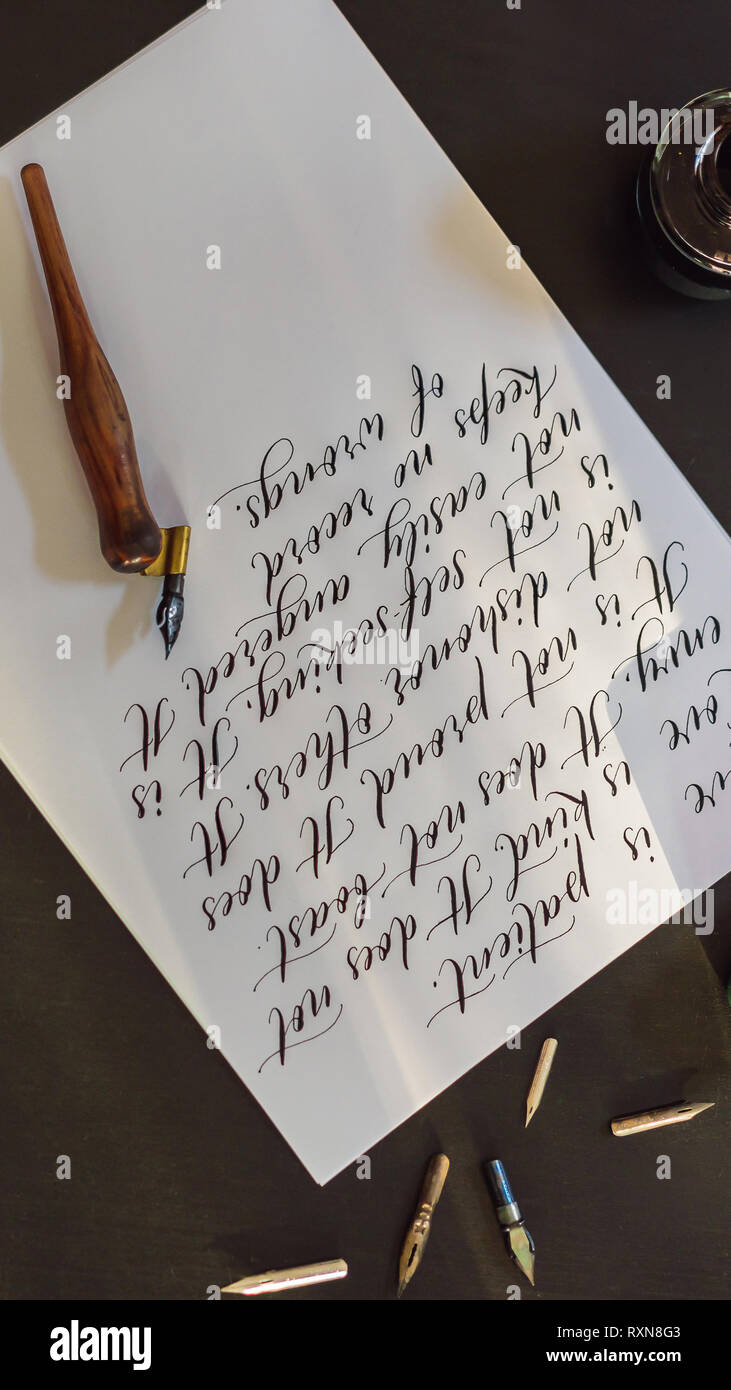 ve is patient.
ove is kind. It does not
envy. It does not boast.
It is not proud. It does
not dishonor others. It
is not self-seeking. It is
not easily angered. It
keeps no record
of wrongs.
alamy
Image ID: RXN8G3
www.alamy.com